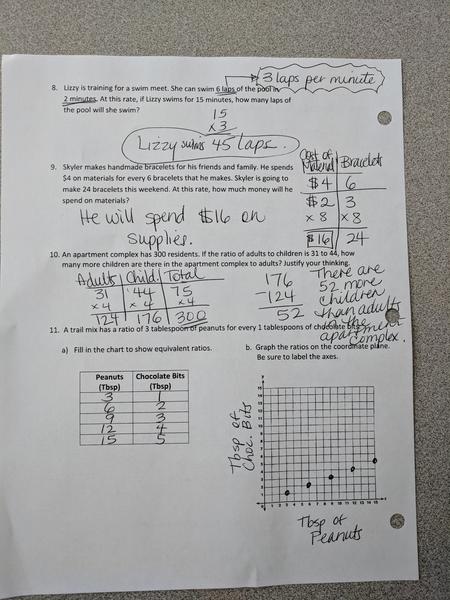 3 laps per minute
8. Lizzy is training for a swim meet. She can swim 6 laps of the pool in
2 minutes. At this rate, if Lizzy swims for 15 minutes, how many laps of
the pool will she swim?
15
x 3
Lizzy swims 45 laps.
9. Skyler makes handmade bracelets for his friends and family. He spends
$4 on materials for every 6 bracelets that he makes. Skyler is going to
make 24 bracelets this weekend. At this rate, how much money will he
spend on materials?
Cost of
Material Bracelets
$4 6
$2 3
x 8 x 8
$16 24
He will spend $16 on
supplies.
10. An apartment complex has 300 residents. If the ratio of adults to children is 31 to 44, how
many more children are there in the apartment complex to adults? Justify your thinking.
Adults Child Total
31 44 75
x 4 x 4 x 4
124 176 300
176
-124
52
There are
52 more
children
than adults
in the
apartment
complex.
11. A trail mix has a ratio of 3 tablespoon of peanuts for every 1 tablespoons of chocolate bits.
a) Fill in the chart to show equivalent ratios.
Peanuts Chocolate Bits
(Tbsp) (Tbsp)
3 1
6 2
9 3
12 4
15 5
b. Graph the ratios on the coordinate plane.
Be sure to label the axes.
Tbsp of
Choc. Bits
Tbsp of
Peanuts